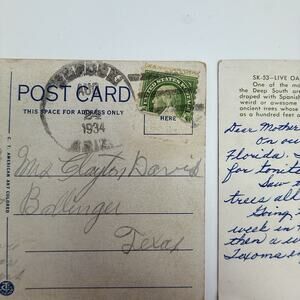 POST CARD
THIS SPACE FOR ADDRESS ONLY
AUG
24
1934
ARIZ.
UNITED STATES
HERE
C. T. AMERICAN ART COLORED
Mrs Clayton Davis
Ballinger
Texas
SK-53—LIVE OA
One of the m
the Deep South are
draped with Spanis
weird or awesome
ancient trees whose
as a hundred feet a
Dear Mother
On ou
Florida.
for tonite
Saw
trees all
Going
week in
then a w
Texoma